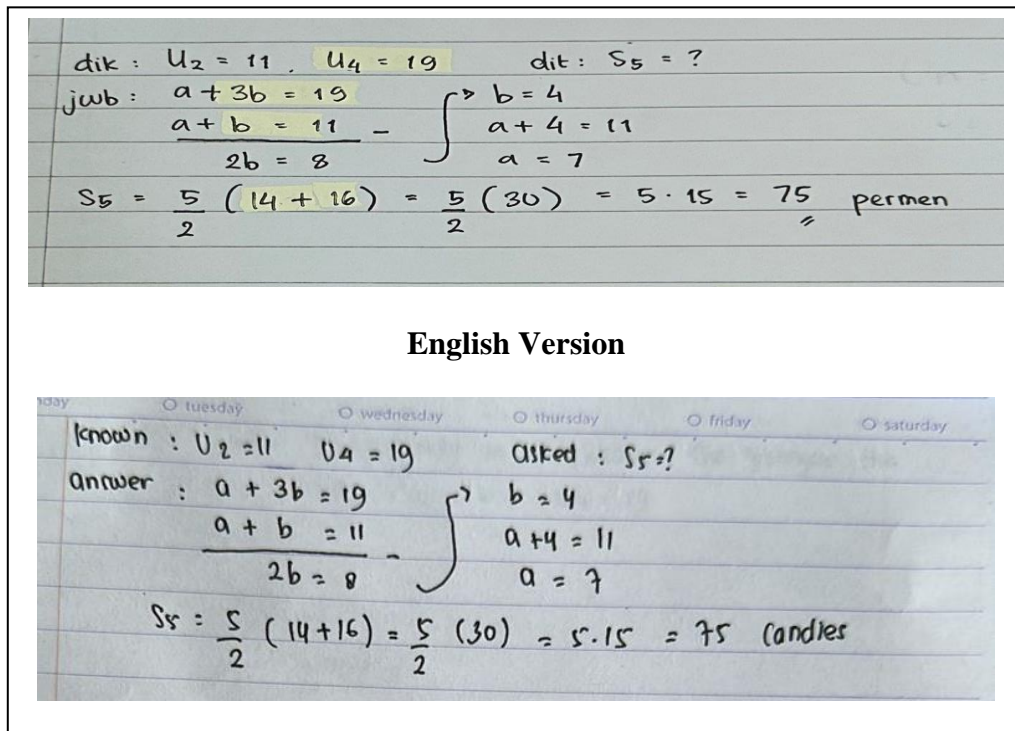 dik : U2 = 11 . U4 = 19 dit : S5 = ?
jwb : a + 3b = 19 b = 4
a + b = 11 - a + 4 = 11
2b = 8 a = 7
S5 = 5/2 (14 + 16) = 5/2 (30) = 5 . 15 = 75 permen
English Version
nday tuesday wednesday thursday friday saturday
known : U2 = 11 U4 = 19 asked : S5 = ?
answer : a + 3b = 19 b = 4
a + b = 11 - a + 4 = 11
2b = 8 a = 7
S5 = 5/2 (14 + 16) = 5/2 (30) = 5 . 15 = 75 Candies